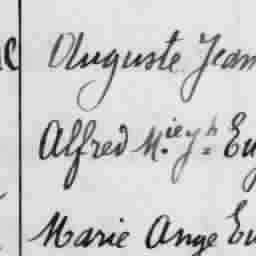 Auguste Jean
Alfred M.ie J.h Eu
Marie Ange Eu